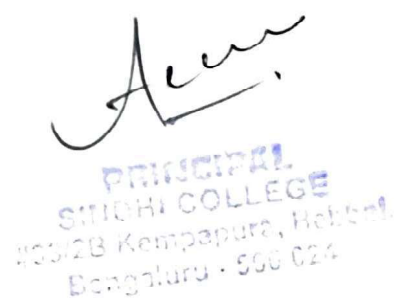 PRINCIPAL
SINDHI COLLEGE
Kempapura, Hebbal,
Bengaluru - 560 024